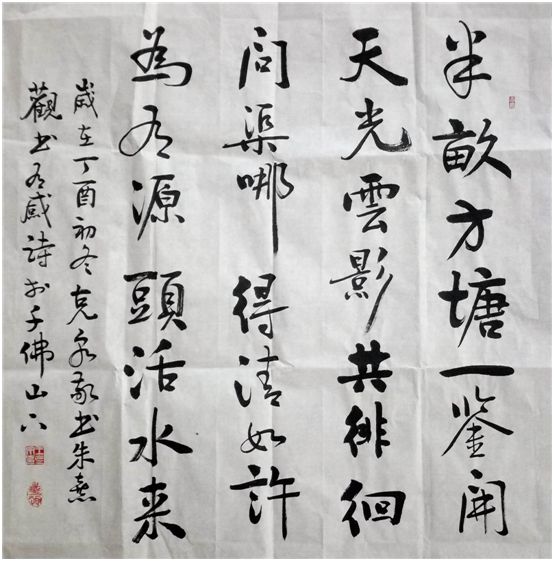 半畝方塘一鉴開
天光雲影共徘徊
问渠哪得清如許
為有源頭活水来
歲在丁酉初冬克泉敬书朱熹
觀书有感詩於千佛山下